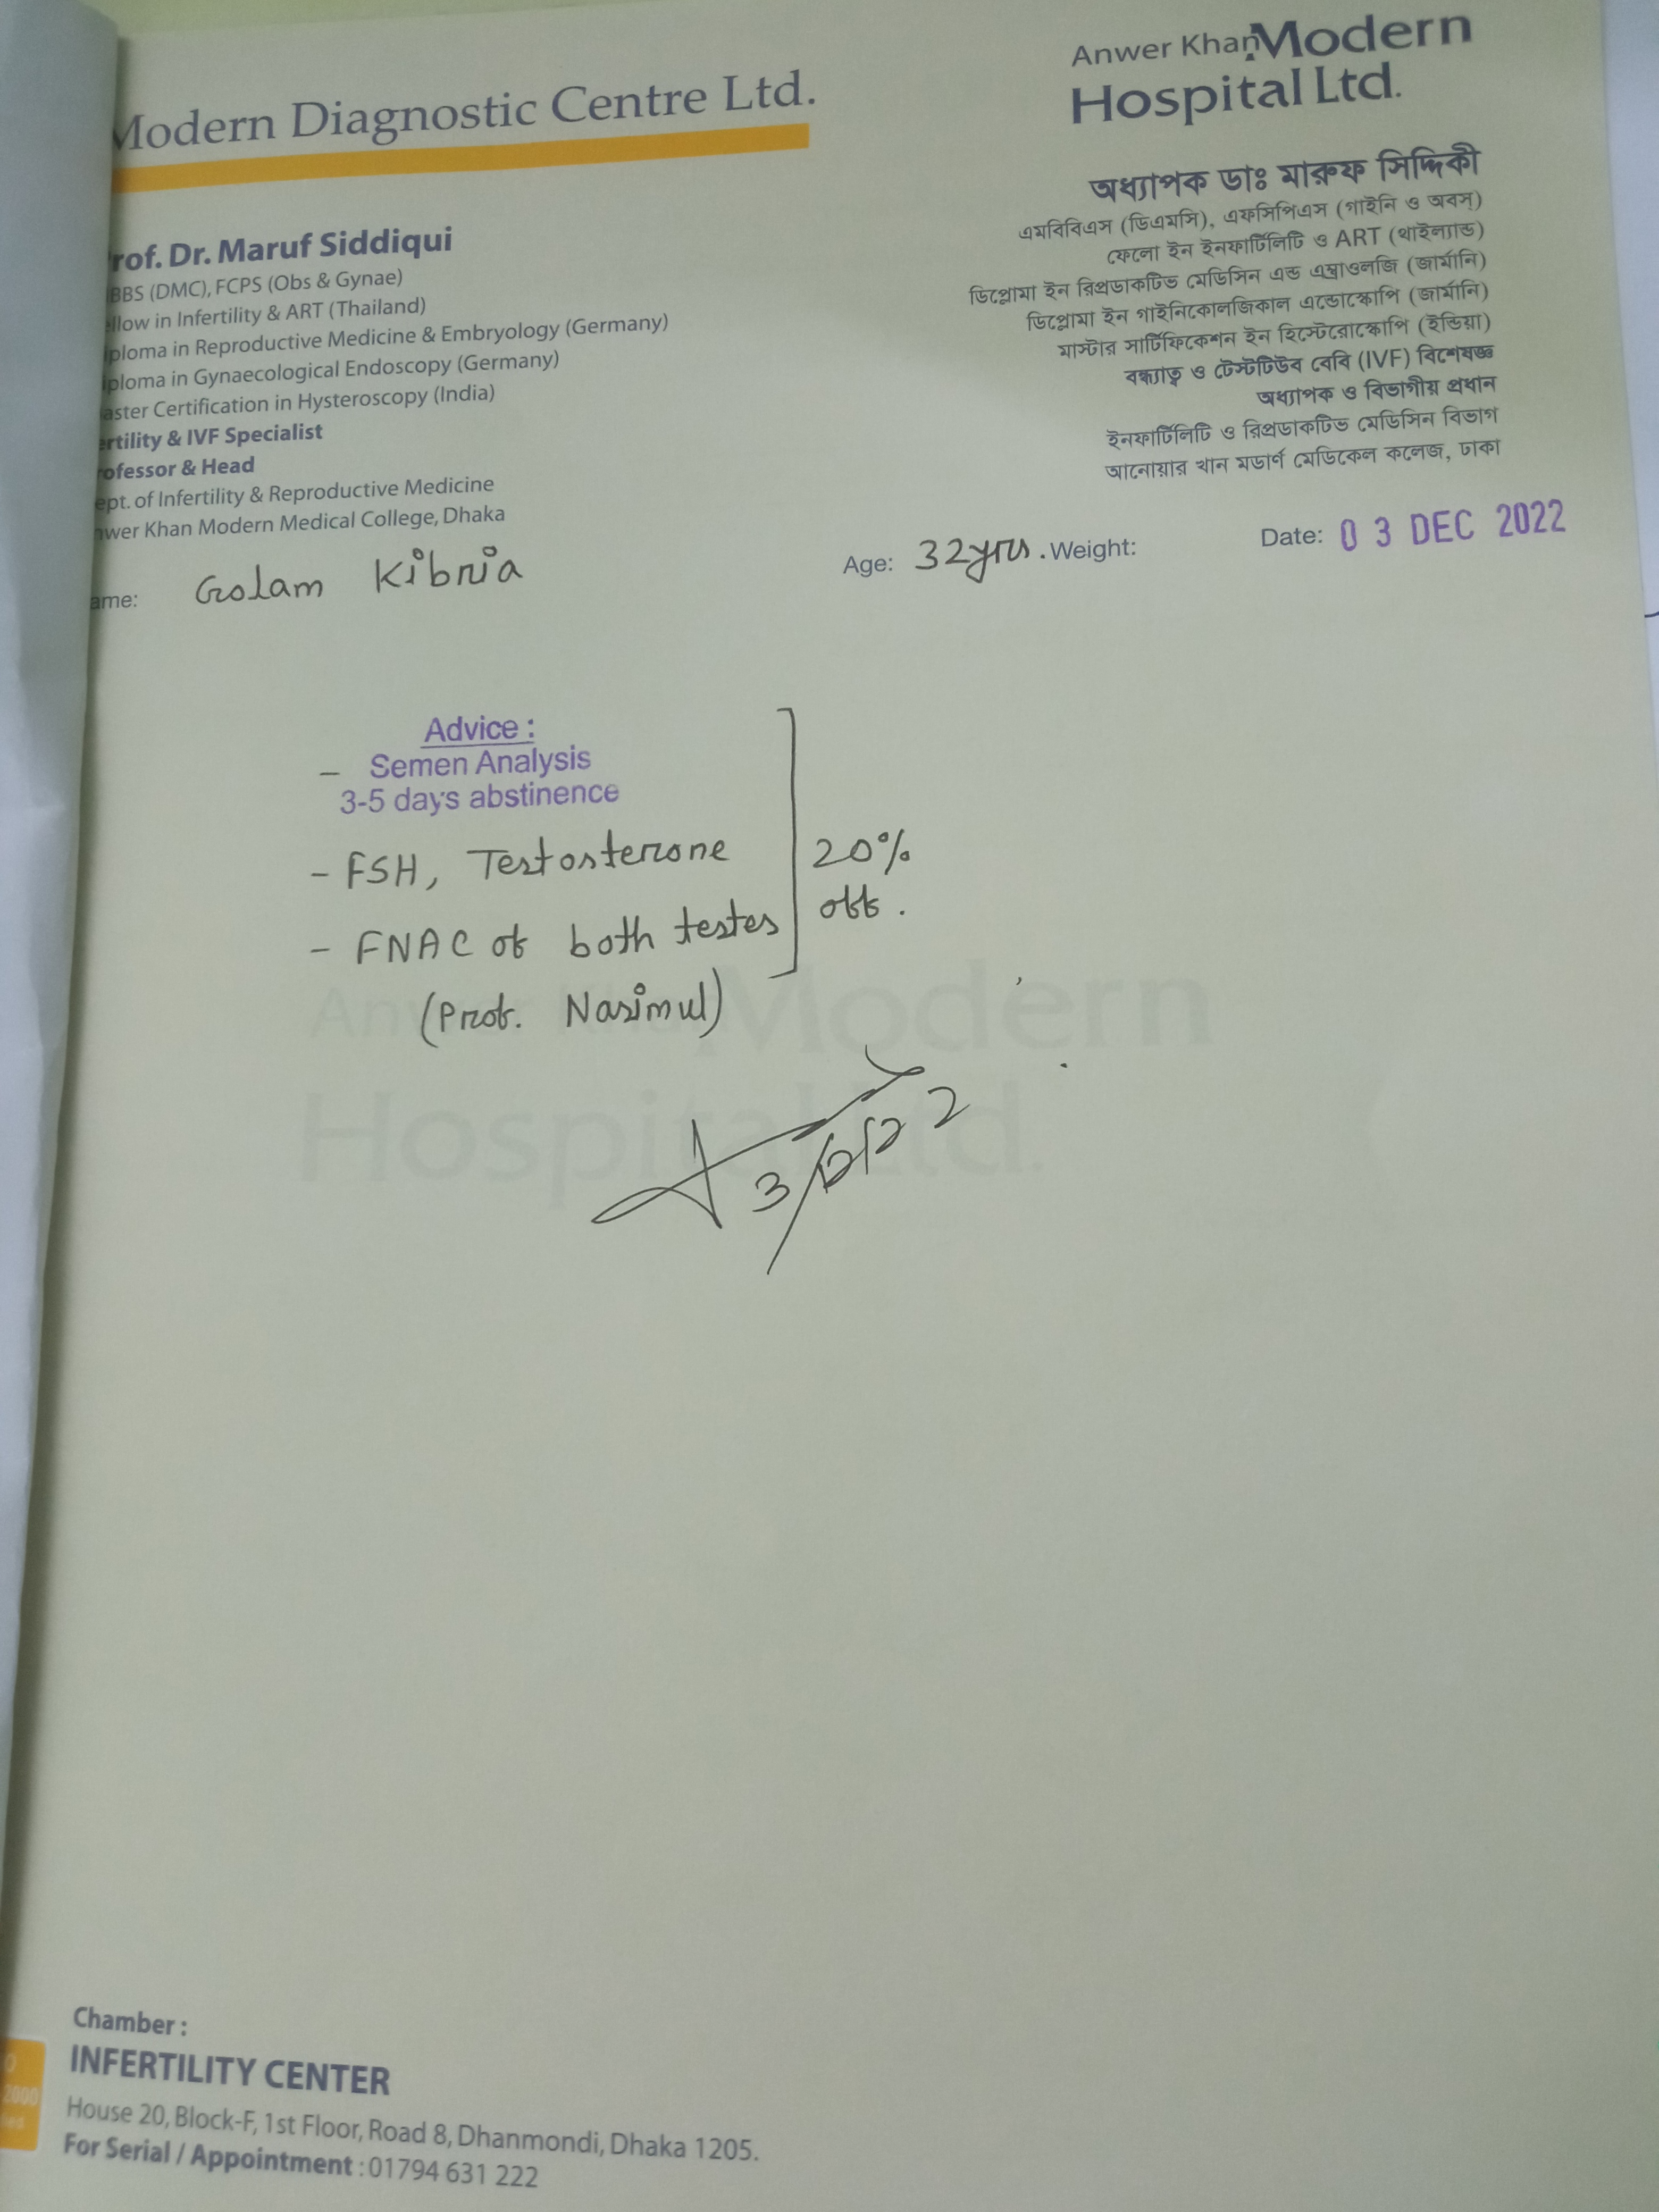 Modern Diagnostic Centre Ltd.
Anwer Khan Modern
Hospital Ltd.
rof. Dr. Maruf Siddiqui
BBS (DMC), FCPS (Obs & Gynae)
ellow in Infertility & ART (Thailand)
iploma in Reproductive Medicine & Embryology (Germany)
iploma in Gynaecological Endoscopy (Germany)
aster Certification in Hysteroscopy (India)
ertility & IVF Specialist
rofessor & Head
ept. of Infertility & Reproductive Medicine
nwer Khan Modern Medical College, Dhaka
অধ্যাপক ডাঃ মারুফ সিদ্দিকী
এমবিবিএস (ডিএমসি), এফসিপিএস (গাইনি ও অবস্)
ফেলো ইন ইনফার্টিলিটি ও ART (থাইল্যান্ড)
ডিপ্লোমা ইন রিপ্রডাকটিভ মেডিসিন এন্ড এম্ব্রাওলজি (জার্মানি)
ডিপ্লোমা ইন গাইনিকোলজিকাল এন্ডোস্কোপি (জার্মানি)
মাস্টার সার্টিফিকেশন ইন হিস্টেরোস্কোপি (ইন্ডিয়া)
বন্ধ্যাত্ব ও টেস্টটিউব বেবি (IVF) বিশেষজ্ঞ
অধ্যাপক ও বিভাগীয় প্রধান
ইনফার্টিলিটি ও রিপ্রডাকটিভ মেডিসিন বিভাগ
আনোয়ার খান মডার্ণ মেডিকেল কলেজ, ঢাকা
ame: Golam Kibria Age: 32yrs. Weight: Date: 03 DEC 2022
Advice :
– Semen Analysis
3-5 days abstinence
– FSH, Testosterone
– FNAC of both testes
(Prof. Nasimul)
20%
off.
3/12/22
Anwer Khan Modern
Hospital Ltd.
Chamber :
INFERTILITY CENTER
House 20, Block-F, 1st Floor, Road 8, Dhanmondi, Dhaka 1205.
For Serial / Appointment : 01794 631 222
O
2000